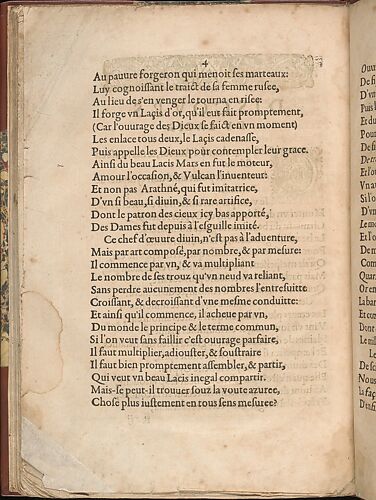 4
Au pauure forgeron qui menoit ſes marteaux:
Luy cognoiſſant le traict de ſa femme ruſee,
Au lieu de s'en venger le tourna en riſee:
Il forge vn Laçis d'or, qu'il eut fait promptement,
(Car l'ouurage des Dieux ſe faict en vn moment)
Les enlace tous deux, le Laçis cadenaſſe,
Puis appelle les Dieux pour contempler leur grace.
Ainſi du beau Lacis Mars en fut le moteur,
Amour l'occaſion, & Vulcan l'inuenteur:
Et non pas Arathné, qui fut imitatrice,
D'vn ſi beau, ſi diuin, & ſi rare artifice,
Dont le patron des cieux icy bas apporté,
Des Dames fut depuis à l'eſguille imité.
Ce chef d'œuure diuin, n'eſt pas à l'aduenture,
Mais par art compoſé, par nombre, & par meſure:
Il commence par vn, & va multipliant
Le nombre de ſes trouz qu'vn neud va reliant,
Sans perdre aucunement des nombres l'entreſuitte
Croiſſant, & decroiſſant d'vne meſme conduitte:
Et ainſi qu'il commence, il acheue par vn,
Du monde le principe & le terme commun,
Si l'on veut ſans faillir c'eſt ouurage parfaire,
Il faut multiplier, adiouſter, & ſouſtraire
Il faut bien promptement aſſembler, & partir,
Qui veut vn beau Lacis inegal compartir.
Mais ſe peut-il trouuer ſouz la voute azuree,
Choſe plus iuſtement en tous ſens meſuree?